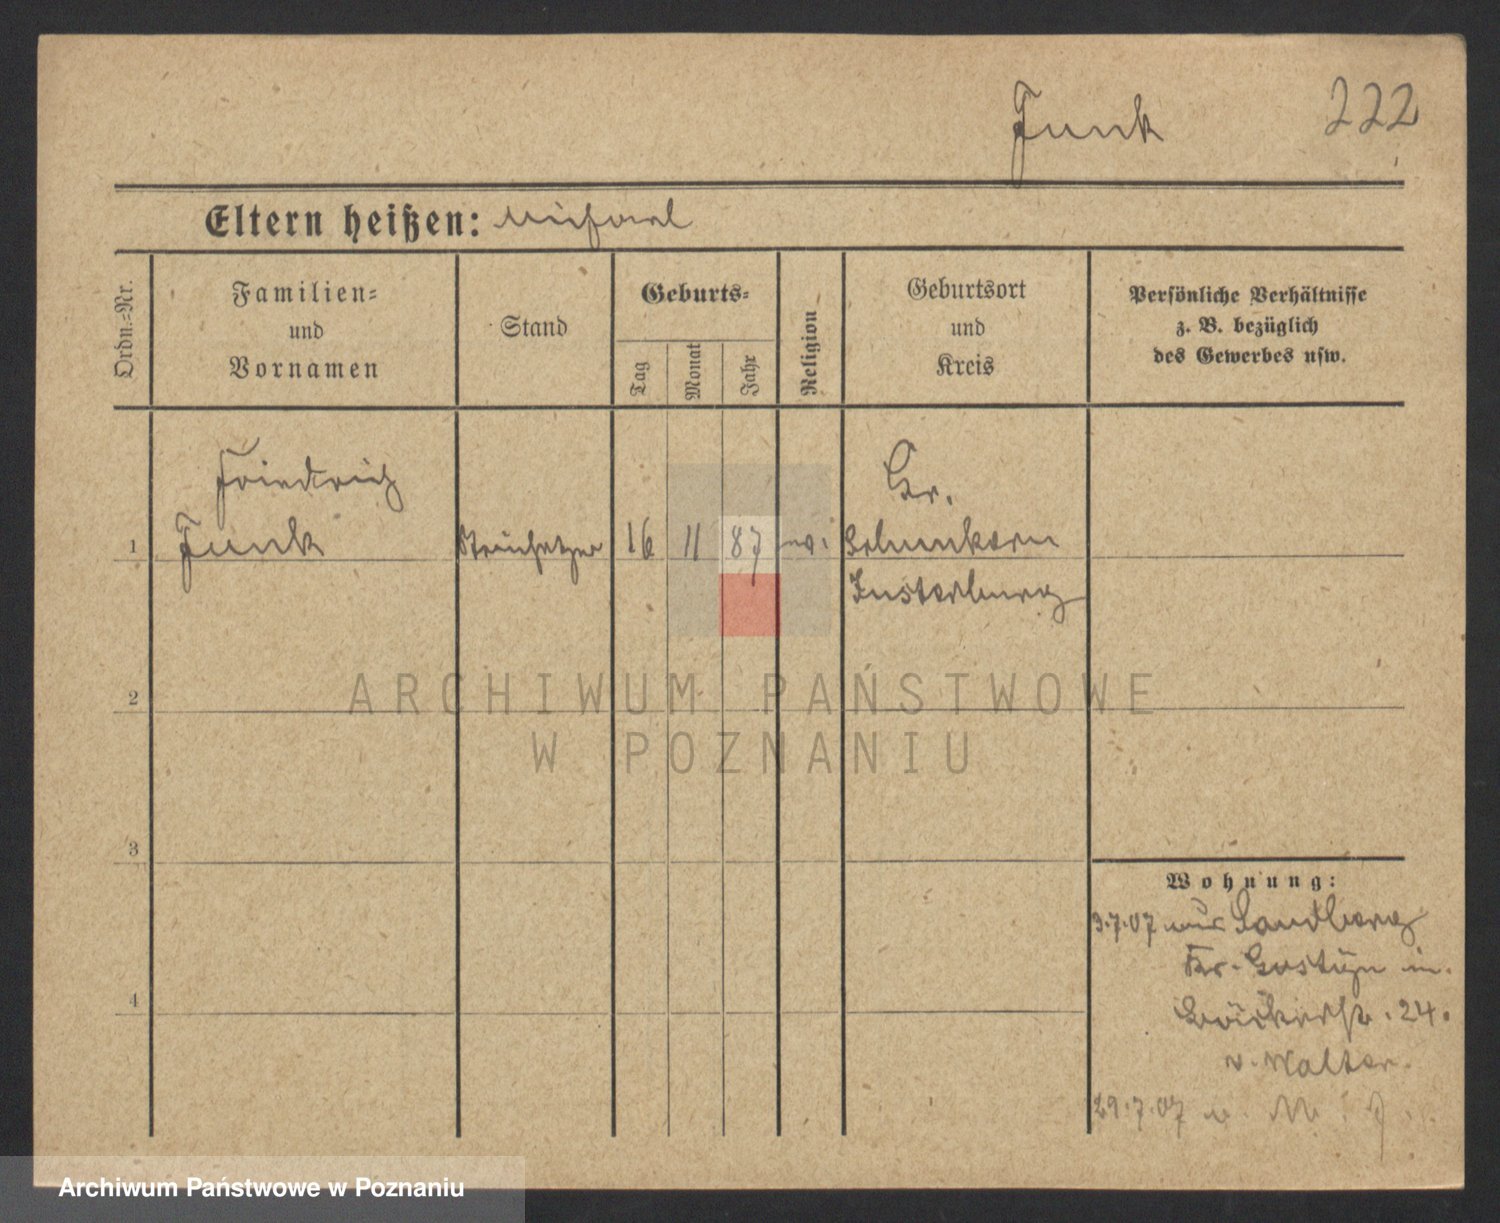 Funk 222
Eltern heißen: Michael
Ordn.-Nr.
Familien-
und
Vornamen
Stand
Geburts-
Tag
Monat
Jahr
Religion
Geburtsort
und
Kreis
Persönliche Verhältnisse
z. B. bezüglich
des Gewerbes usw.
Friedrich
Kr.
1 Funk 16 11 87
Insterburg
ARCHIWUM PAŃSTWOWE
2
W POZNANIU
3
Wohnung:
3.7.07 aus Sandberg
Kr. Gostyn in
24.
v. Walter.
4
29.7.07
Archiwum Państwowe w Poznaniu